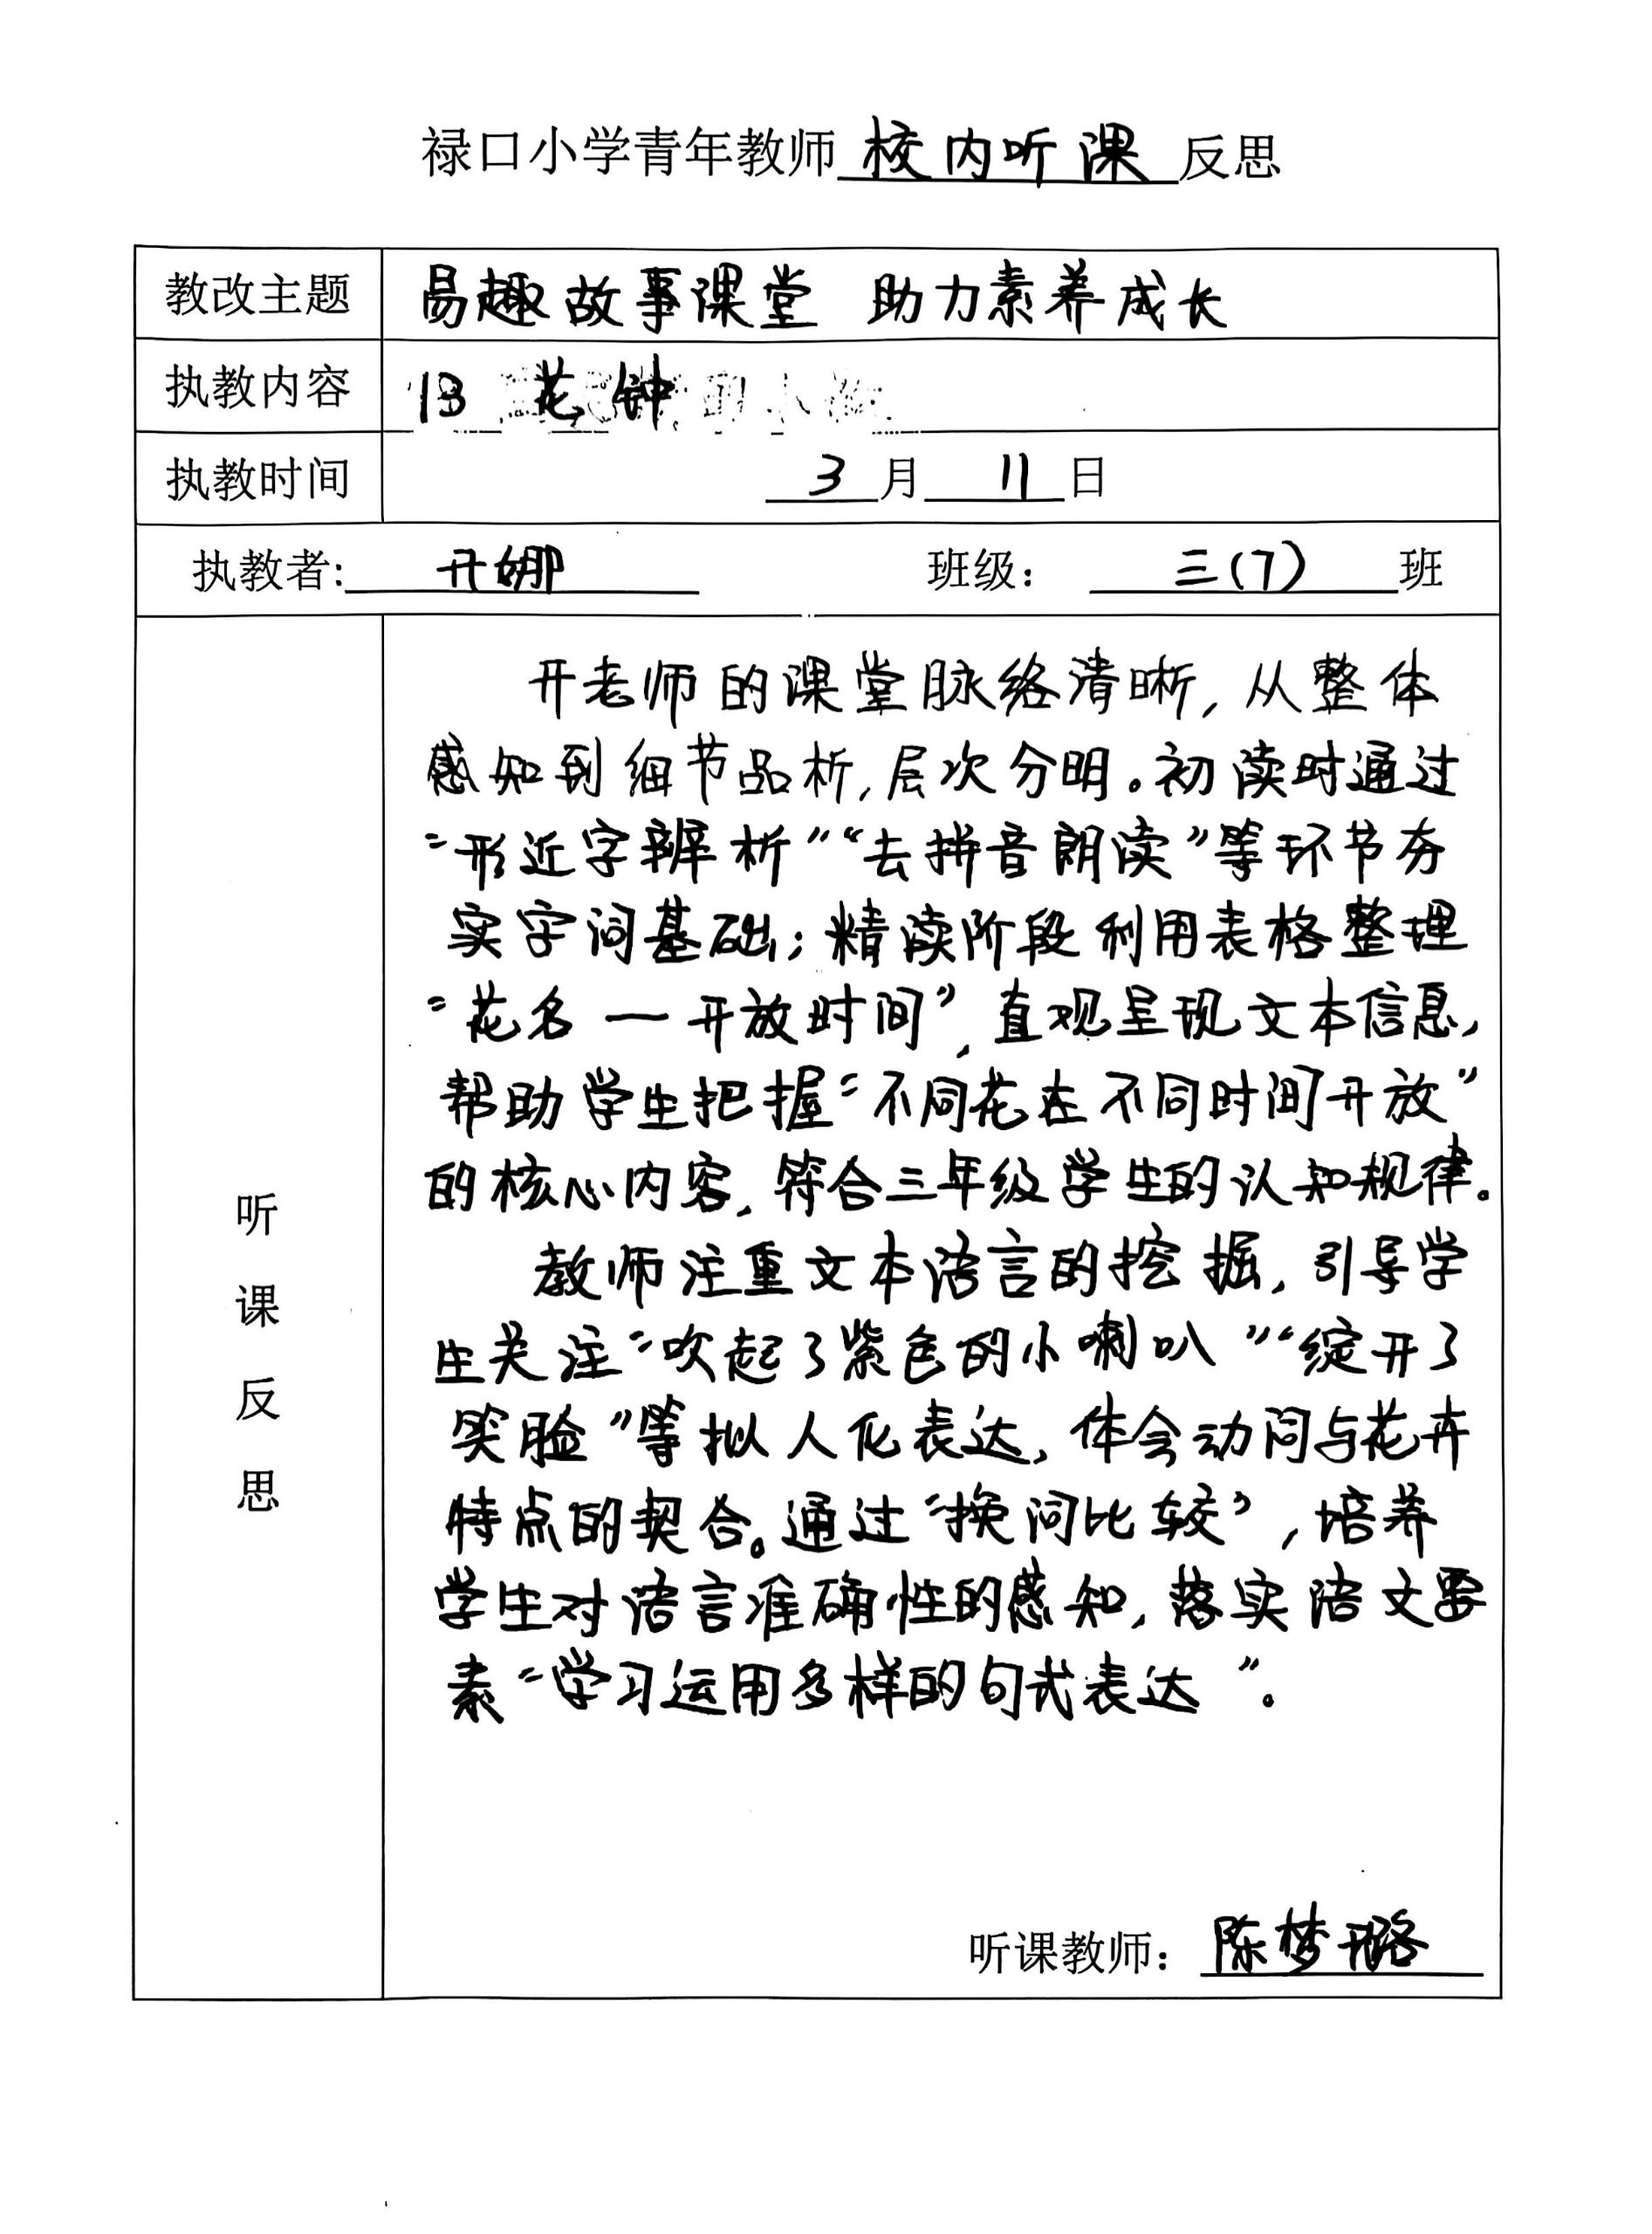 禄口小学青年教师 校内听课 反思
教改主题 易趣故事课堂 助力素养成长
执教内容 13 花钟
执教时间 3 月 11 日
执教者: 开娜 班级: 三(7) 班
听课反思
开老师的课堂脉络清晰,从整体
感知到细节品析,层次分明。初读时通过
“形近字辨析”“去拼音朗读”等环节夯
实字词基础;精读阶段利用表格整理
“花名—开放时间”,直观呈现文本信息,
帮助学生把握“不同花在不同时间开放”
的核心内容,符合三年级学生的认知规律。
教师注重文本语言的挖掘,引导学
生关注“吹起了紫色的小喇叭”“绽开了
笑脸”等拟人化表达,体会动词与花卉
特点的契合。通过“换词比较”,培养
学生对语言准确性的感知,落实语文要
素“学习运用多样的句式表达”。
听课教师: 陈梦璐